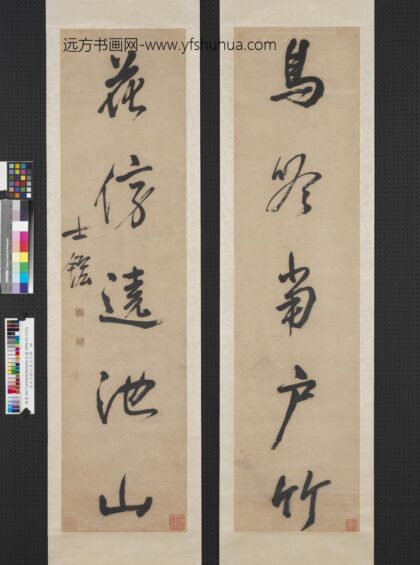 远方书画网-www.yfshuhua.com
鳥吟當戶竹
花傍遶池山
士鋐